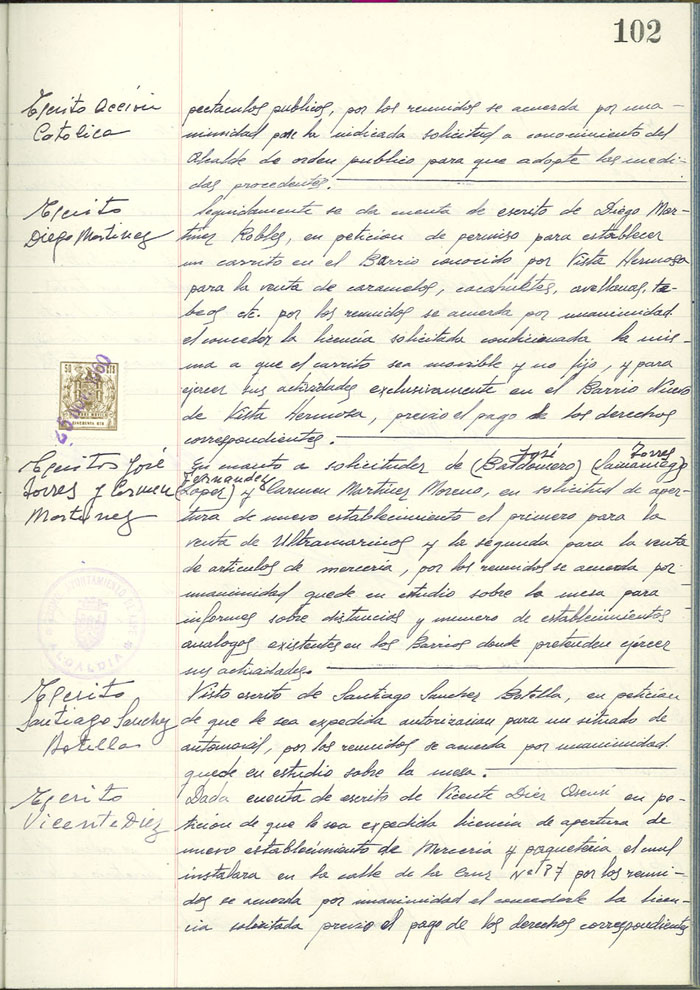 102
Escrito Acción
Católica
pectaculos publicos, por los reunidos se acuerda por una-
nimidad pase la indicada solicitud a conocimiento del
Alcalde de orden publico para que adopte las medi-
das procedentes.
Escrito
Diego Martinez
Seguidamente se da cuenta de escrito de Diego Mar-
tinez Robles, en peticion de permiso para establecer
un carrito en el Barrio conocido por Vista Hermosa
para la venta de caramelos, cacahuetes, avellanas, ta-
beos etc. por los reunidos se acuerda por unanimidad
el conceder la licencia solicitada condicionada la mis-
ma a que el carrito sea movible y no fijo, y para
ejercer sus actividades exclusivamente en el Barrio Nuevo
de Vista Hermosa, previo el pago de los derechos
correspondientes.
50 CTS
25 1960
CINCUENTA CTS
Escritos José
Torres y Carmen
Martinez
José Torres
En cuanto a solicitudes de (Baldomero) (Samaniego)
Fernandez
(Lopez) y Carmen Martinez Moreno, en solicitud de aper-
tura de nuevo establecimiento el primero para la
venta de Ultramarinos y la segunda para la venta
de articulos de merceria, por los reunidos se acuerda por
unanimidad quede en estudio sobre la mesa para
informes sobre distancias y numero de establecimientos
analogos existentes en los Barrios donde pretenden ejercer
sus actividades.
AYUNTAMIENTO DE
ALCALDIA
Escrito
Santiago Sanchez
Botella
Visto escrito de Santiago Sanchez Botella, en peticion
de que le sea expedida autorizacion para un situado de
automovil, por los reunidos se acuerda por unanimidad
quede en estudio sobre la mesa.
Escrito
Vicente Diez
Dada cuenta de escrito de Vicente Diez Asensi en pe-
ticion de que le sea expedida licencia de apertura de
nuevo establecimiento de Merceria y paqueteria el cual
instalara en la calle de la Cruz Nº 37 por los reuni-
dos se acuerda por unanimidad el concederle la licen-
cia solicitada previo el pago de los derechos correspondientes